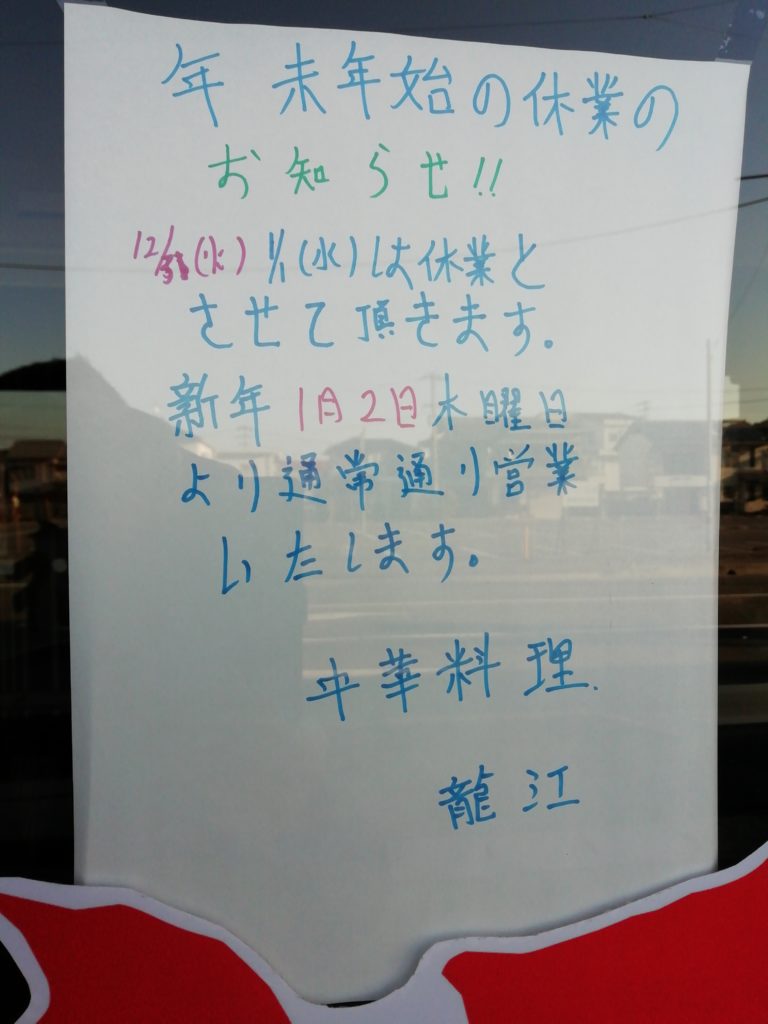 年末年始の休業の
お知らせ!!
12/31(火) 1/1(水)は休業と
させて頂きます。
新年1月2日木曜日
より通常通り営業
いたします。
中華料理
龍江